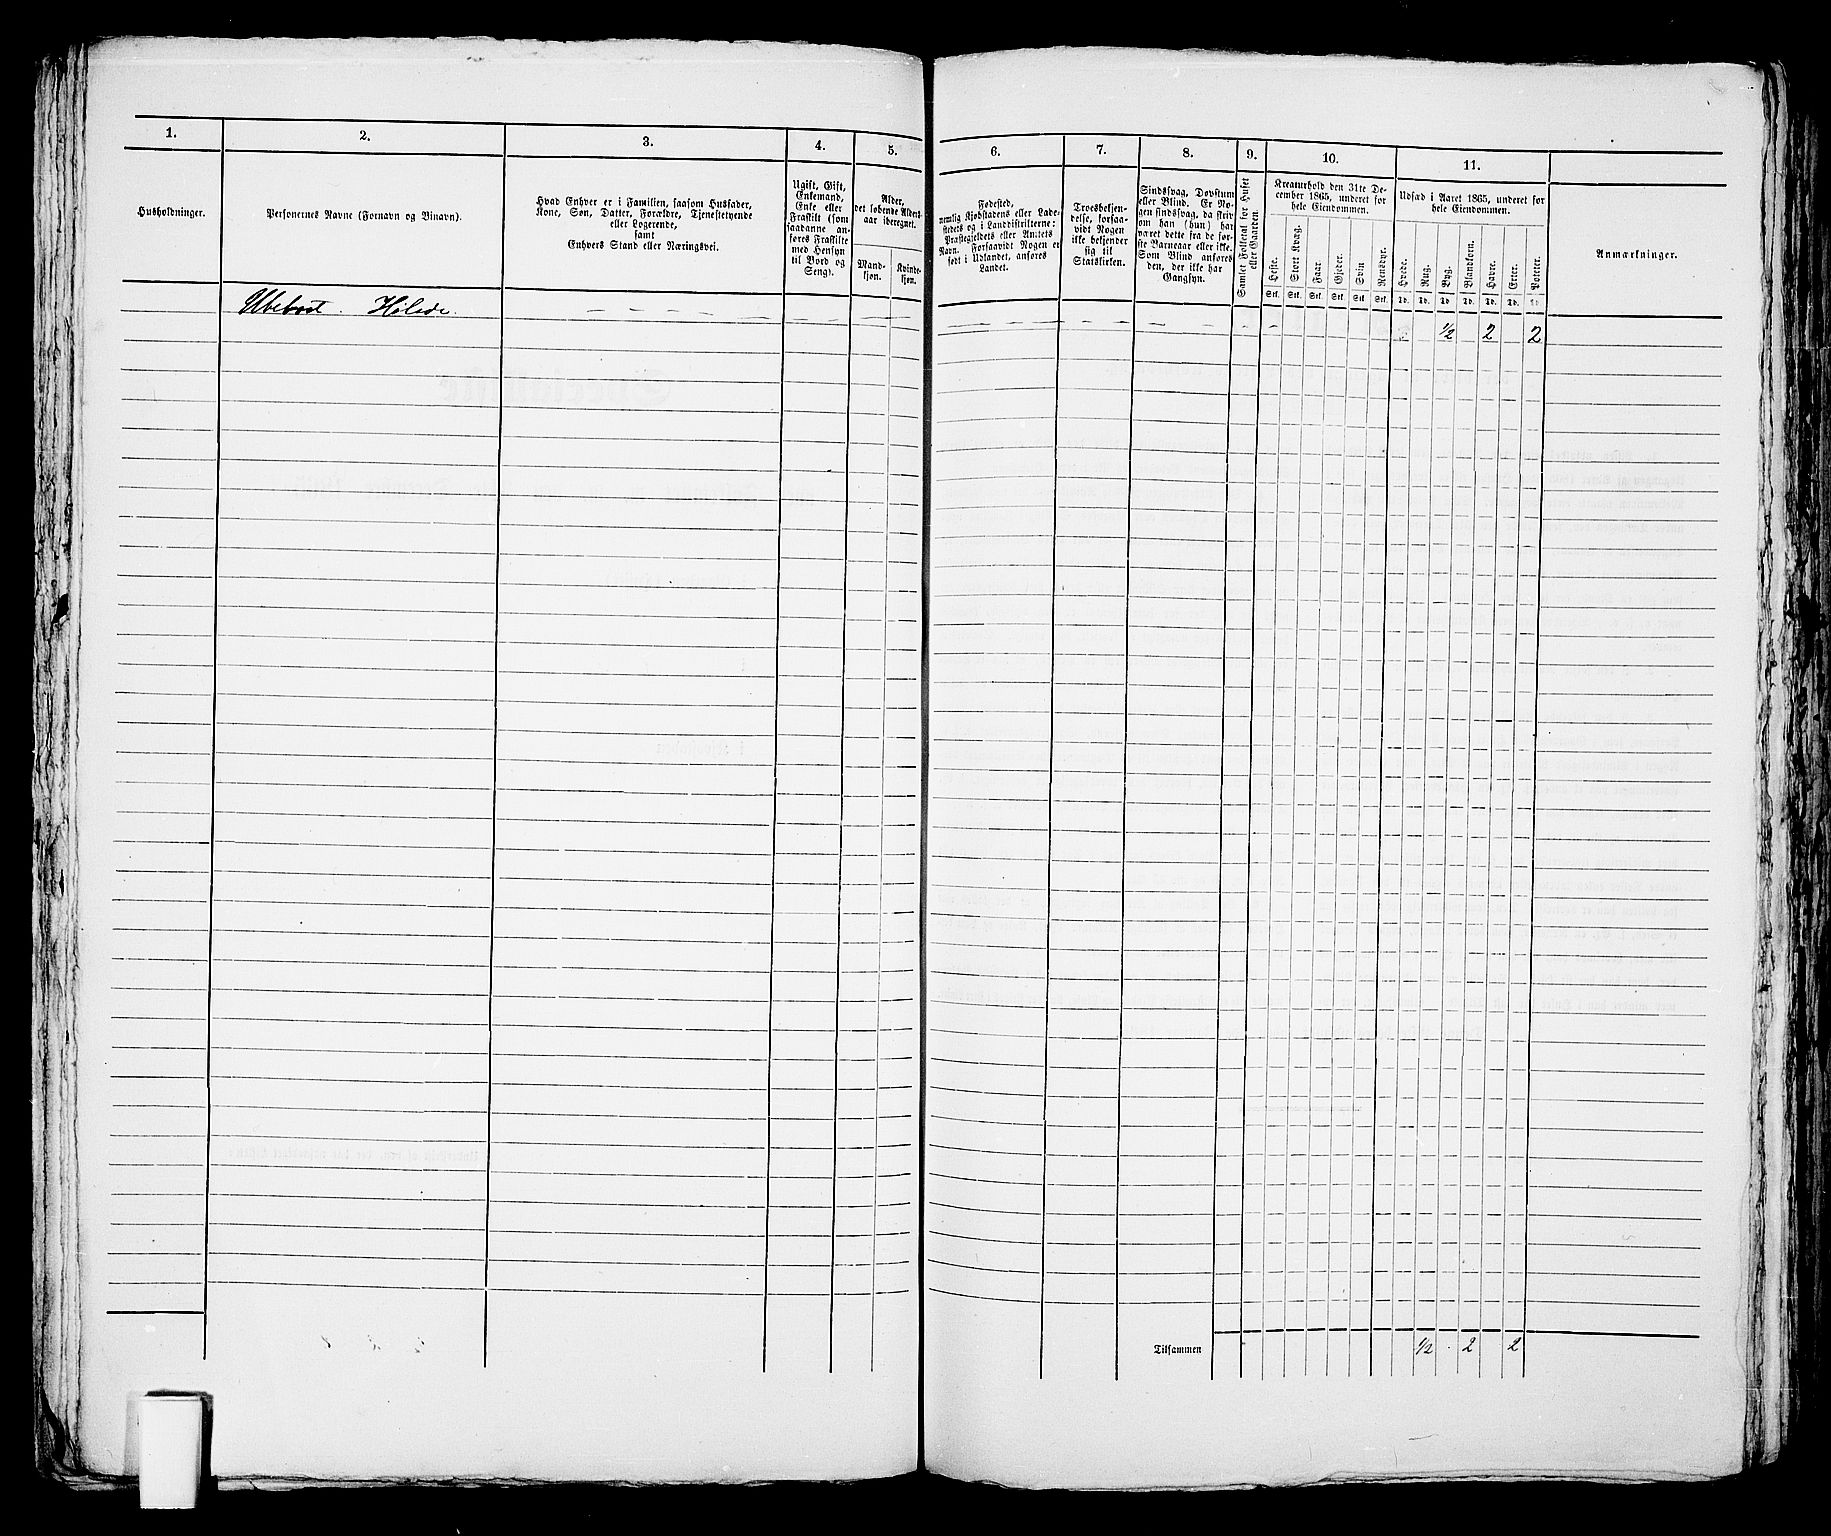 1.
2.
3.
4.
5.
Husholdninger.
Personernes Navne (Fornavn og Binavn).
Hvad Enhver er i Familien, saasom Husfader,
Kone, Søn, Datter, Forældre, Tjenestetyende
eller Logerende,
samt
Enhvers Stand eller Næringsvei.
Ugift, Gift,
Enkemand,
Enke eller
Fraskilt (som
saadanne an-
føres Fraskilte
med Hensyn
til Bord og
Seng).
Alder,
det løbende Alders-
aar iberegnet.
Mand-
kjøn.
Kvinde-
kjøn.
Ubeboet. – – – – – – – – –
6.
7.
8.
9.
10.
11.
Fødested,
nemlig Kjøbstadens eller Lade-
stedets og i Landdistrikterne:
Præstegjeldets eller Amtets
Navn. Forsaavidt Nogen er
født i Udlandet, anføres
Landet.
Troesbekjen-
delse, forsaa-
vidt Nogen
ikke bekjender
sig til
Statskirken.
Sindssvag, Døvstum
eller Blind. Er No-
gen sindssvag, da skriv
om han (hun) har
været dette fra de før-
ste Barneaar eller ikke.
Som Blind anføres
den, der ikke har
Gangsyn.
Samlet Folketal for Huset
eller Gaarden.
Kreaturhold den 31te De-
cember 1865, underet for
hele Eiendommen.
Heste.
Stort Kvæg.
Faar.
Gjeder.
Svin
Rensdyr.
Stk. Stk. Stk. Stk. Stk. Stk.
Udsæd i Aaret 1865, underet for
hele Eiendommen.
Hvede.
Rug.
Byg.
Blandkorn.
Havre.
Erter.
Poteter.
Td. Td. Td Td. Td. Td. Td
Anmærkninger.
½ 2 2
Tilsammen ½ 2 2